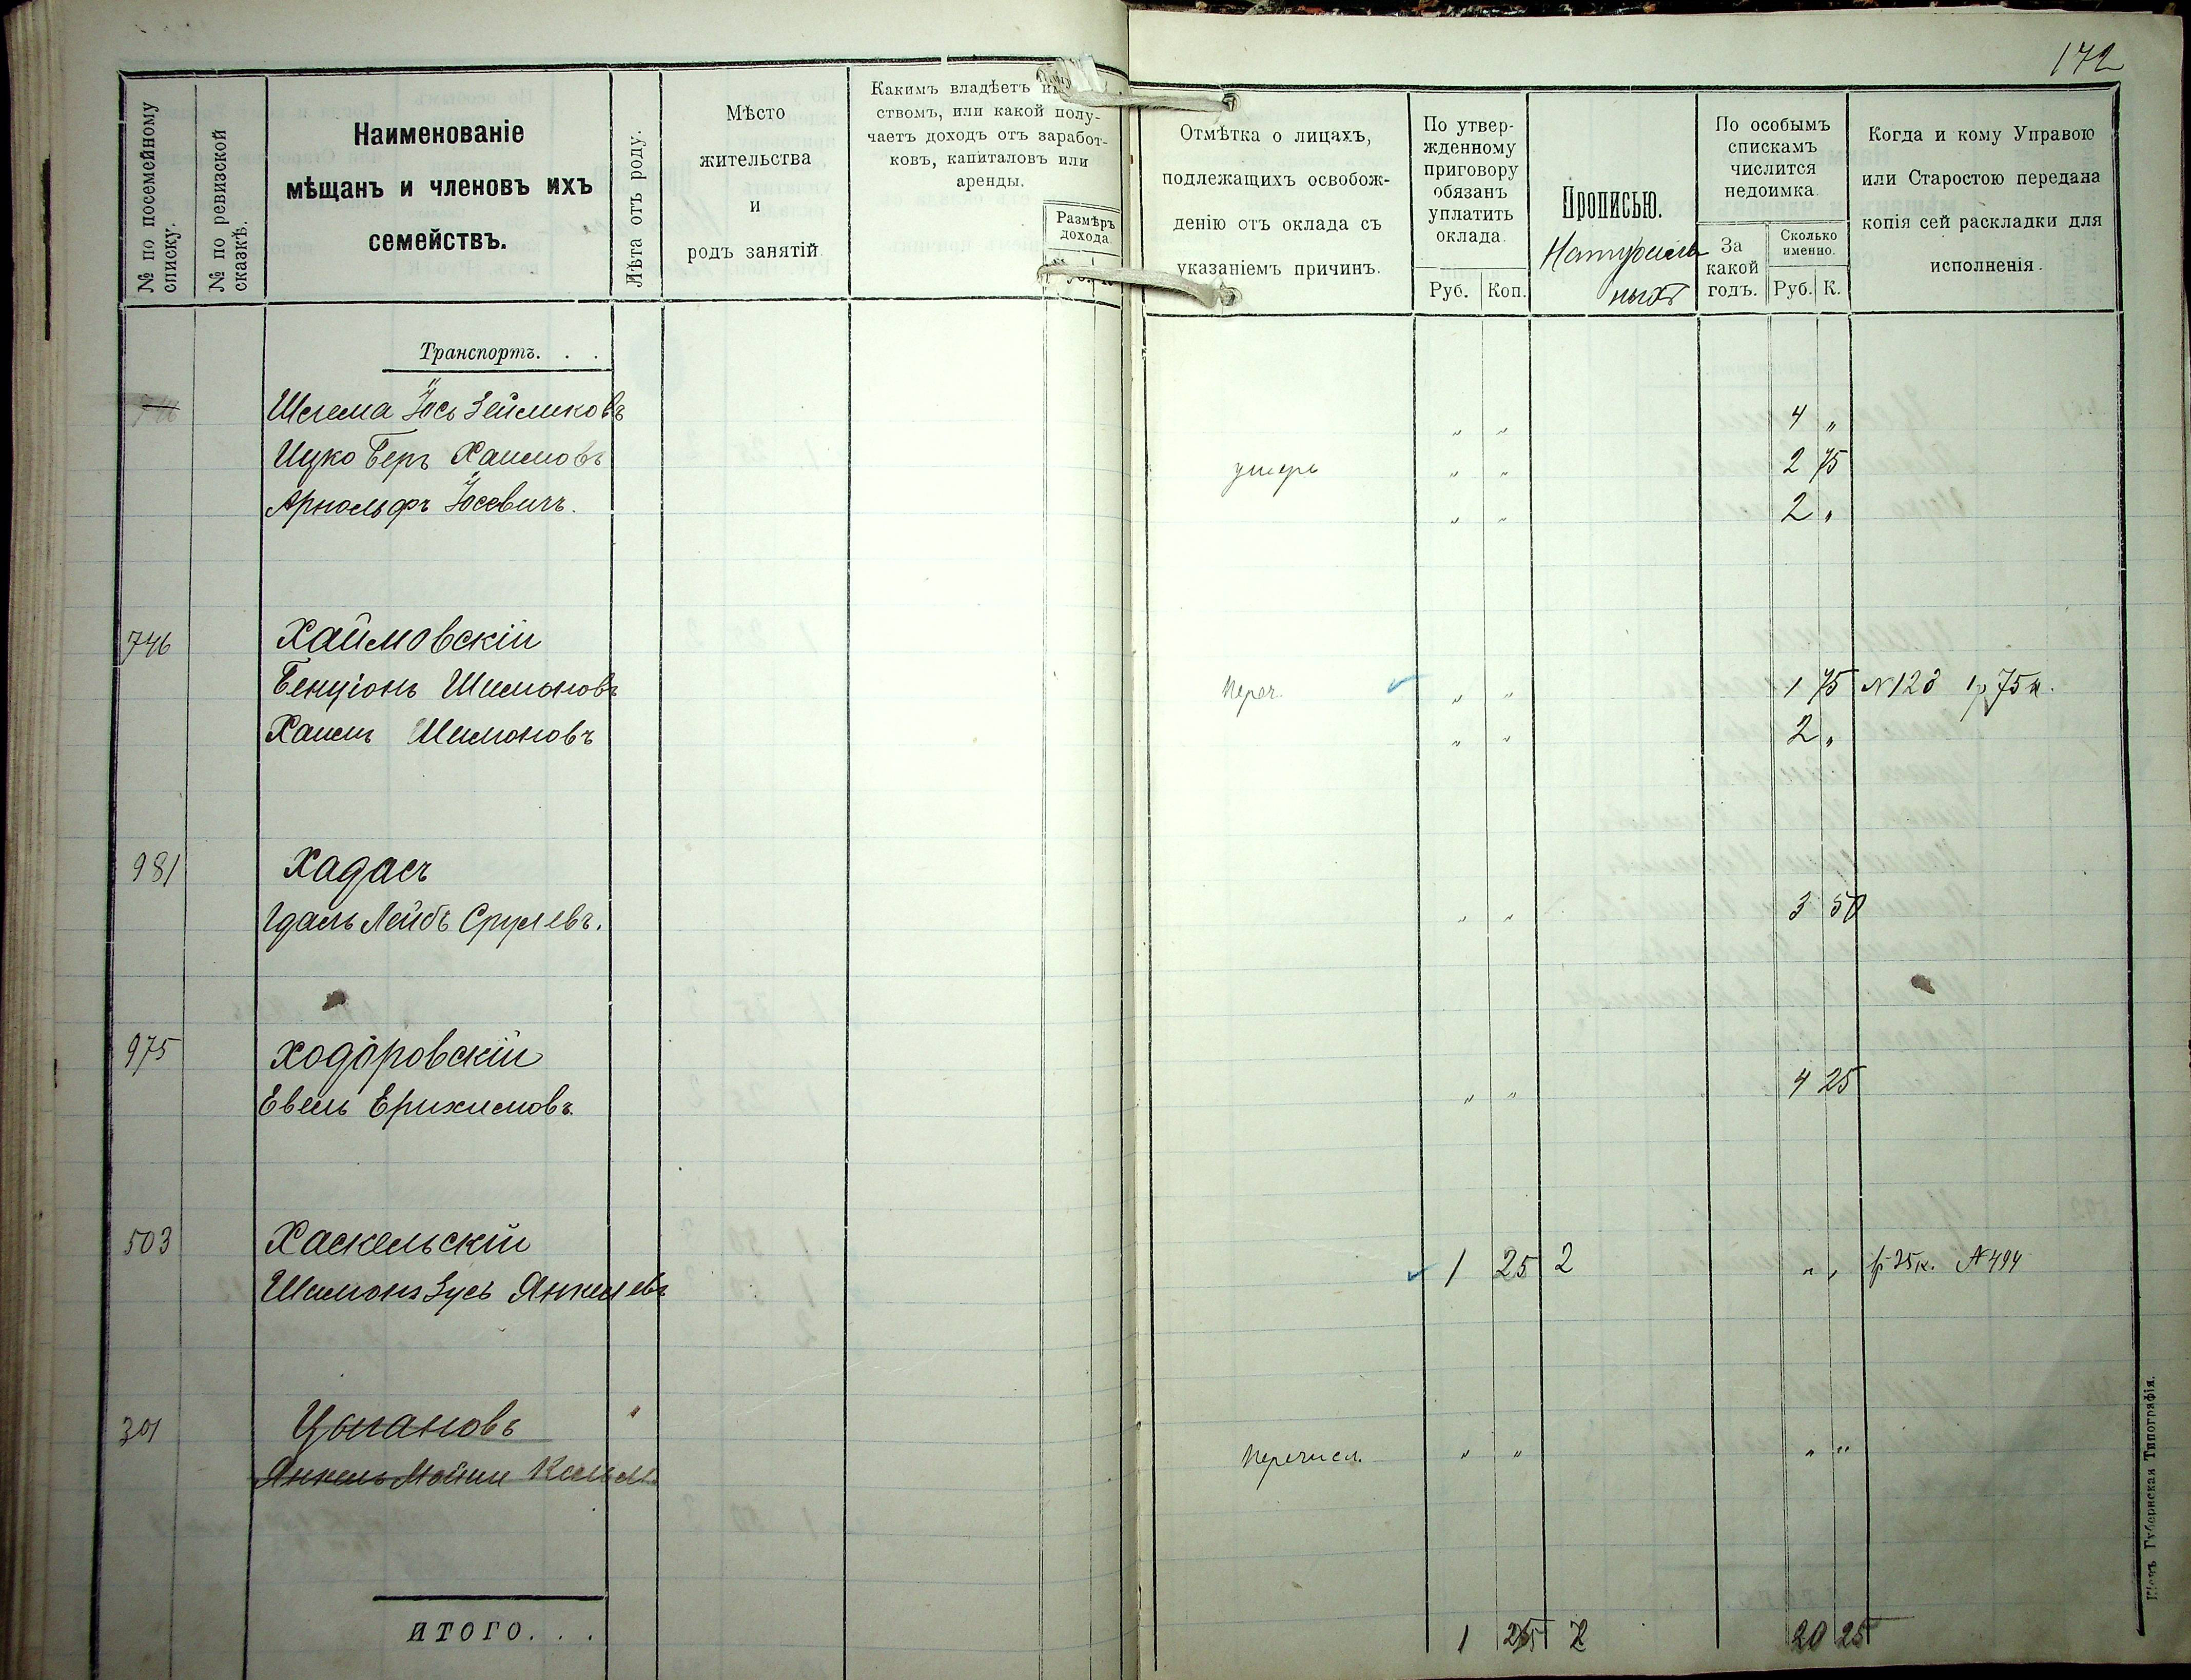 172
№ по посемейному списку.
№ по ревизской сказкѣ.
Наименованіе
мѣщанъ и членовъ ихъ
семействъ.
Лѣта отъ роду.
Мѣсто
жительства
и
родъ занятій
Какимъ владѣетъ
ствомъ, или какой полу-
чаетъ доходъ отъ заработ-
ковъ, капиталовъ или
аренды.
Размѣръ
дохода
Отмѣтка о лицахъ,
подлежащихъ освобож-
денію отъ оклада съ
указаніемъ причинъ.
По утвер-
жденному
приговору
обязанъ
уплатить
оклада
Руб. Коп.
Прописью.
Натураль
ныхъ
По особымъ
спискамъ
числится
недоимка
За
какой
годъ.
Сколько
именно.
Руб. К.
Когда и кому Управою
или Старостою передана
копія сей раскладки для
исполненія.
Транспортъ. . .
746 Шлема Іось Зейликовъ " " 4 "
Ицко Беръ Хаимовъ умеръ " " 2 75
Арнольфъ Іосевичъ. " " 2 "
746 Хаймовскій
Бенціонъ Шимоновъ Переч. " " 1 75 №123 1р 75к.
Хаимъ Шимоновъ " " 2 "
981 Хадасъ
Гдаль Лейбъ Срулевъ. " " 3 50
975 Ходоровскій
Евель Ерихимовъ " " 4 25
503 Хаскельскій
Шимонъ Зусь Янкелевъ 1 25 2 " " 1р 25к. №494
301 Цыгановъ "
Янкель Мойше Кельм. Перечисл. " " " "
ИТОГО. . . 1 25 2 20 25
Кіевъ Губернская Типографія.